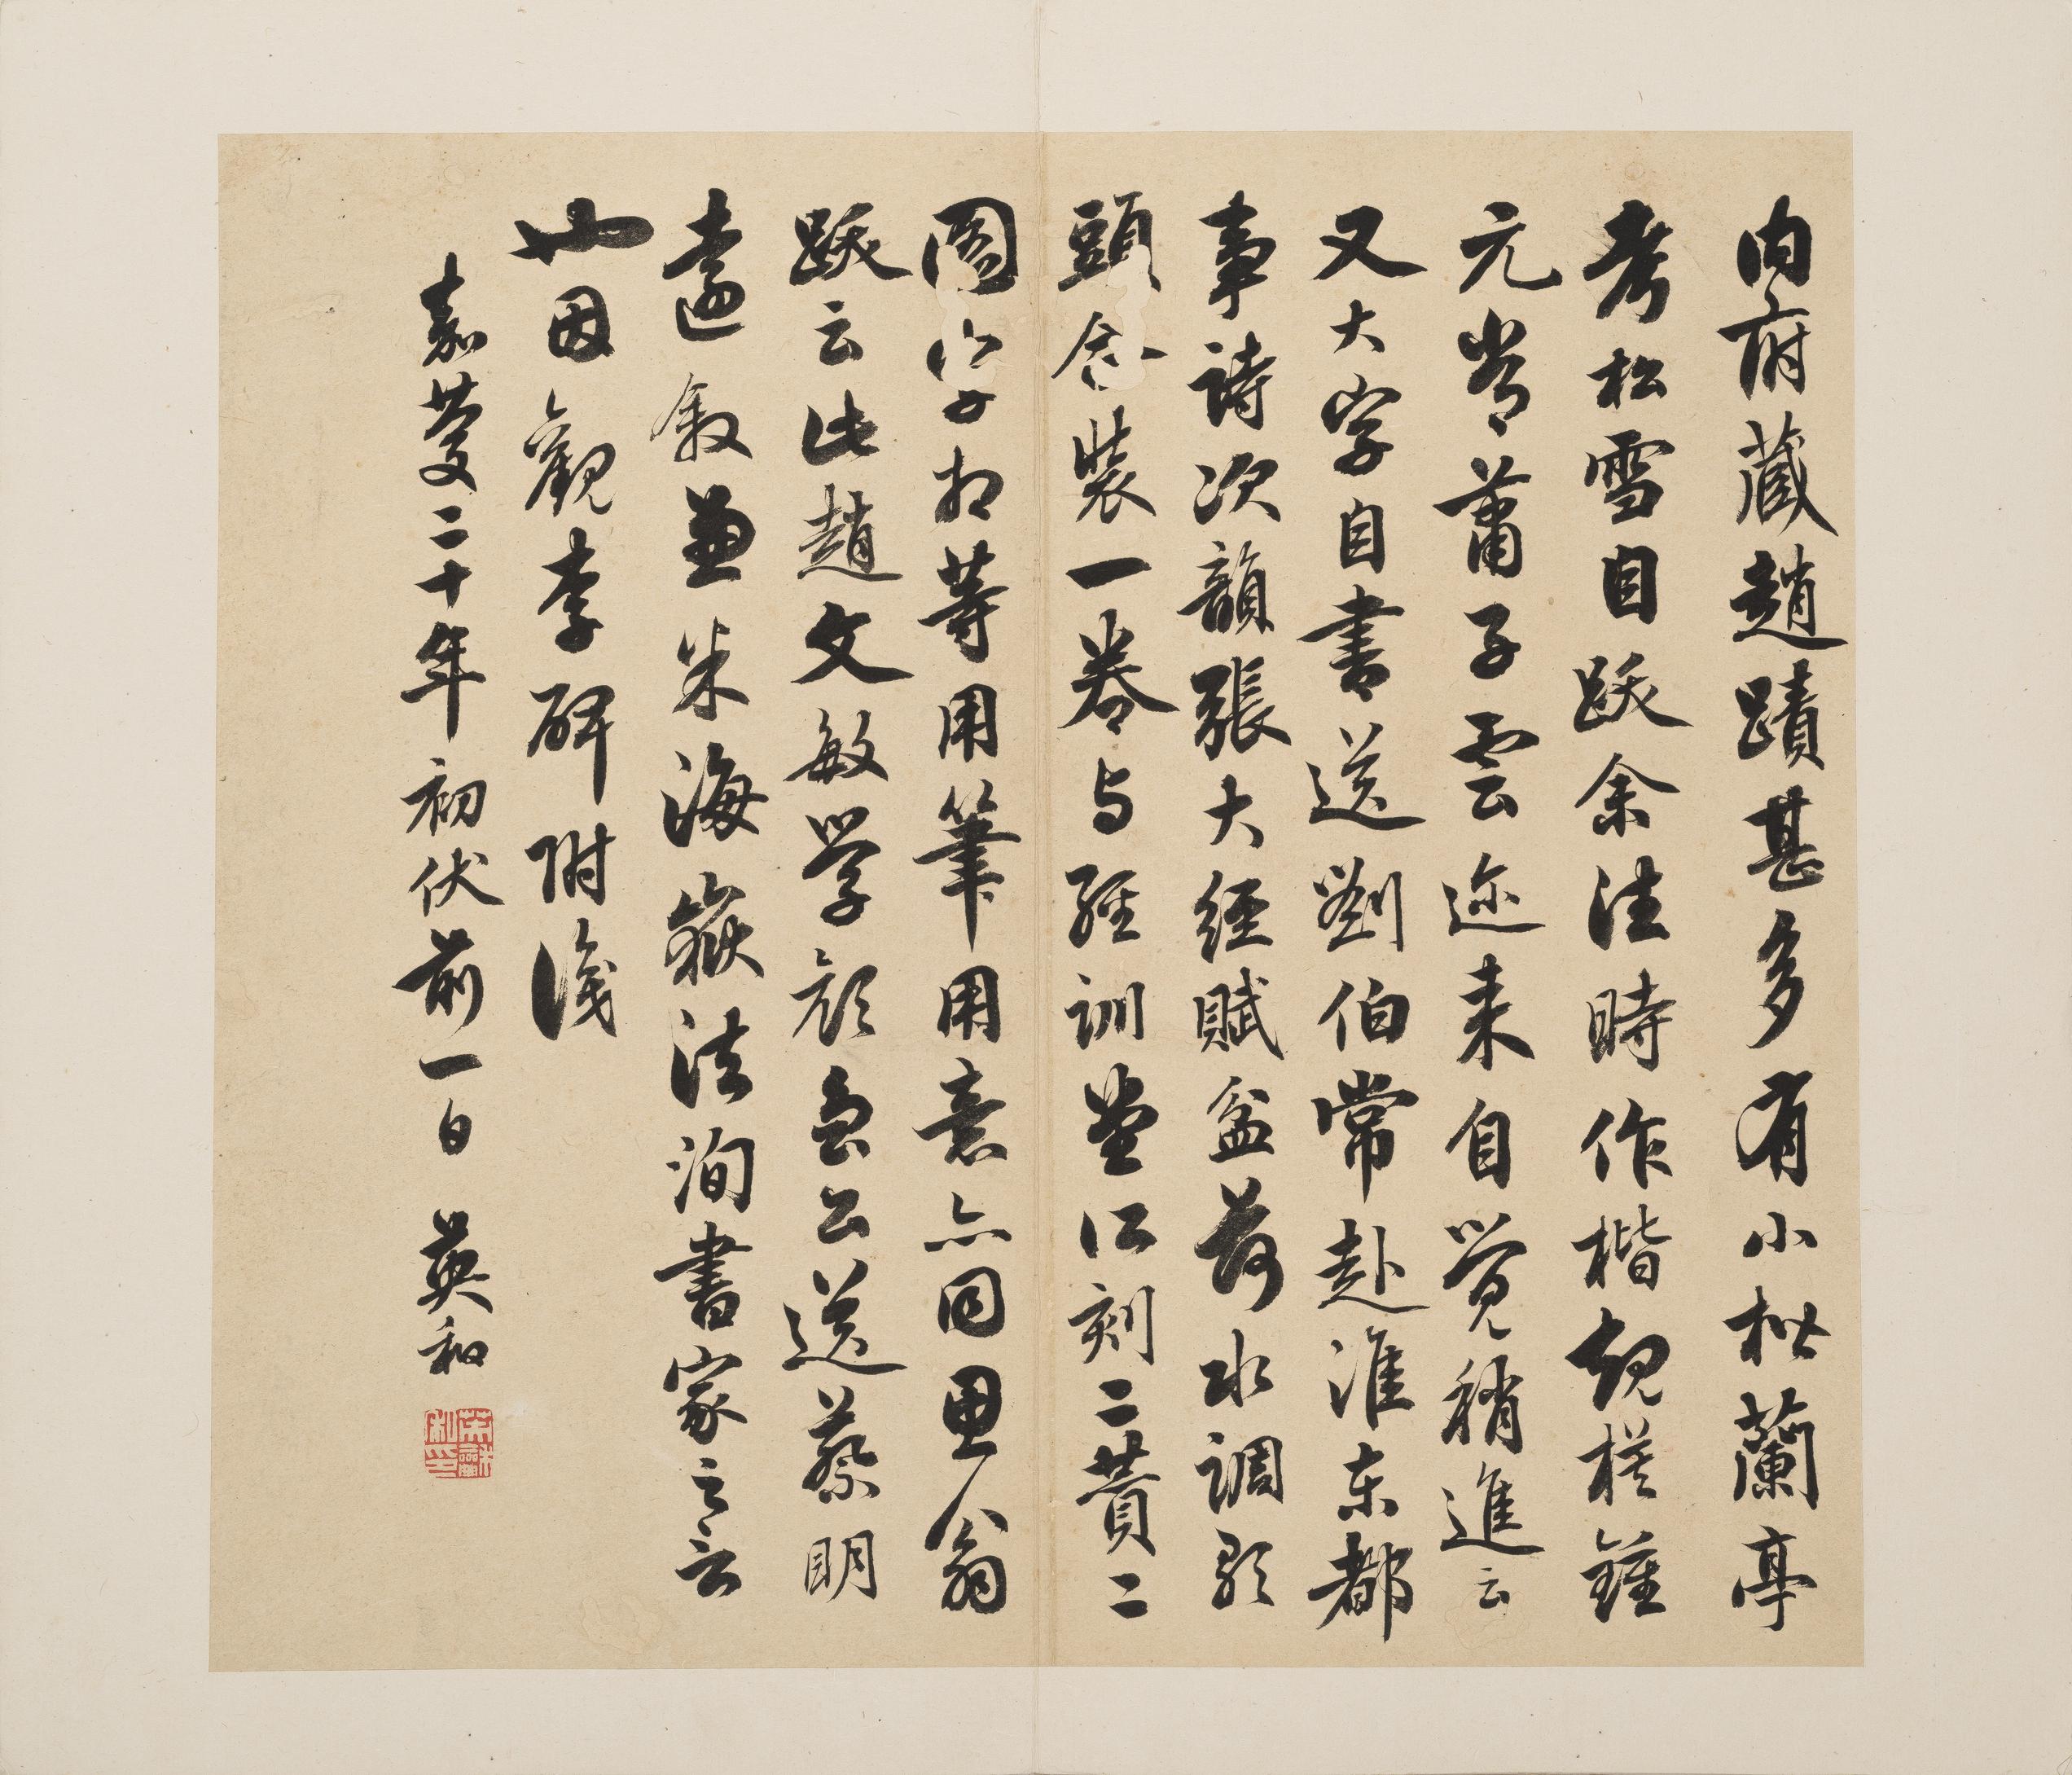 內府藏趙蹟甚多有小楷蘭亭
考松雪自跋余法時作楷規模鍾
元常蕭子雲迩来自覺稍進云
又大字自書送劉伯常赴淮东都
事詩次韻張大經賦盆荷水調歌
頭合裝一卷与經訓堂江刻二贊二
圖字相等用筆用意亦同思翁
跋云此趙文敏學顔魯公送蔡明
遠敘兼米海嶽法洵書家之言
也因觀李碑附識
嘉慶二十年初伏前一日 英和